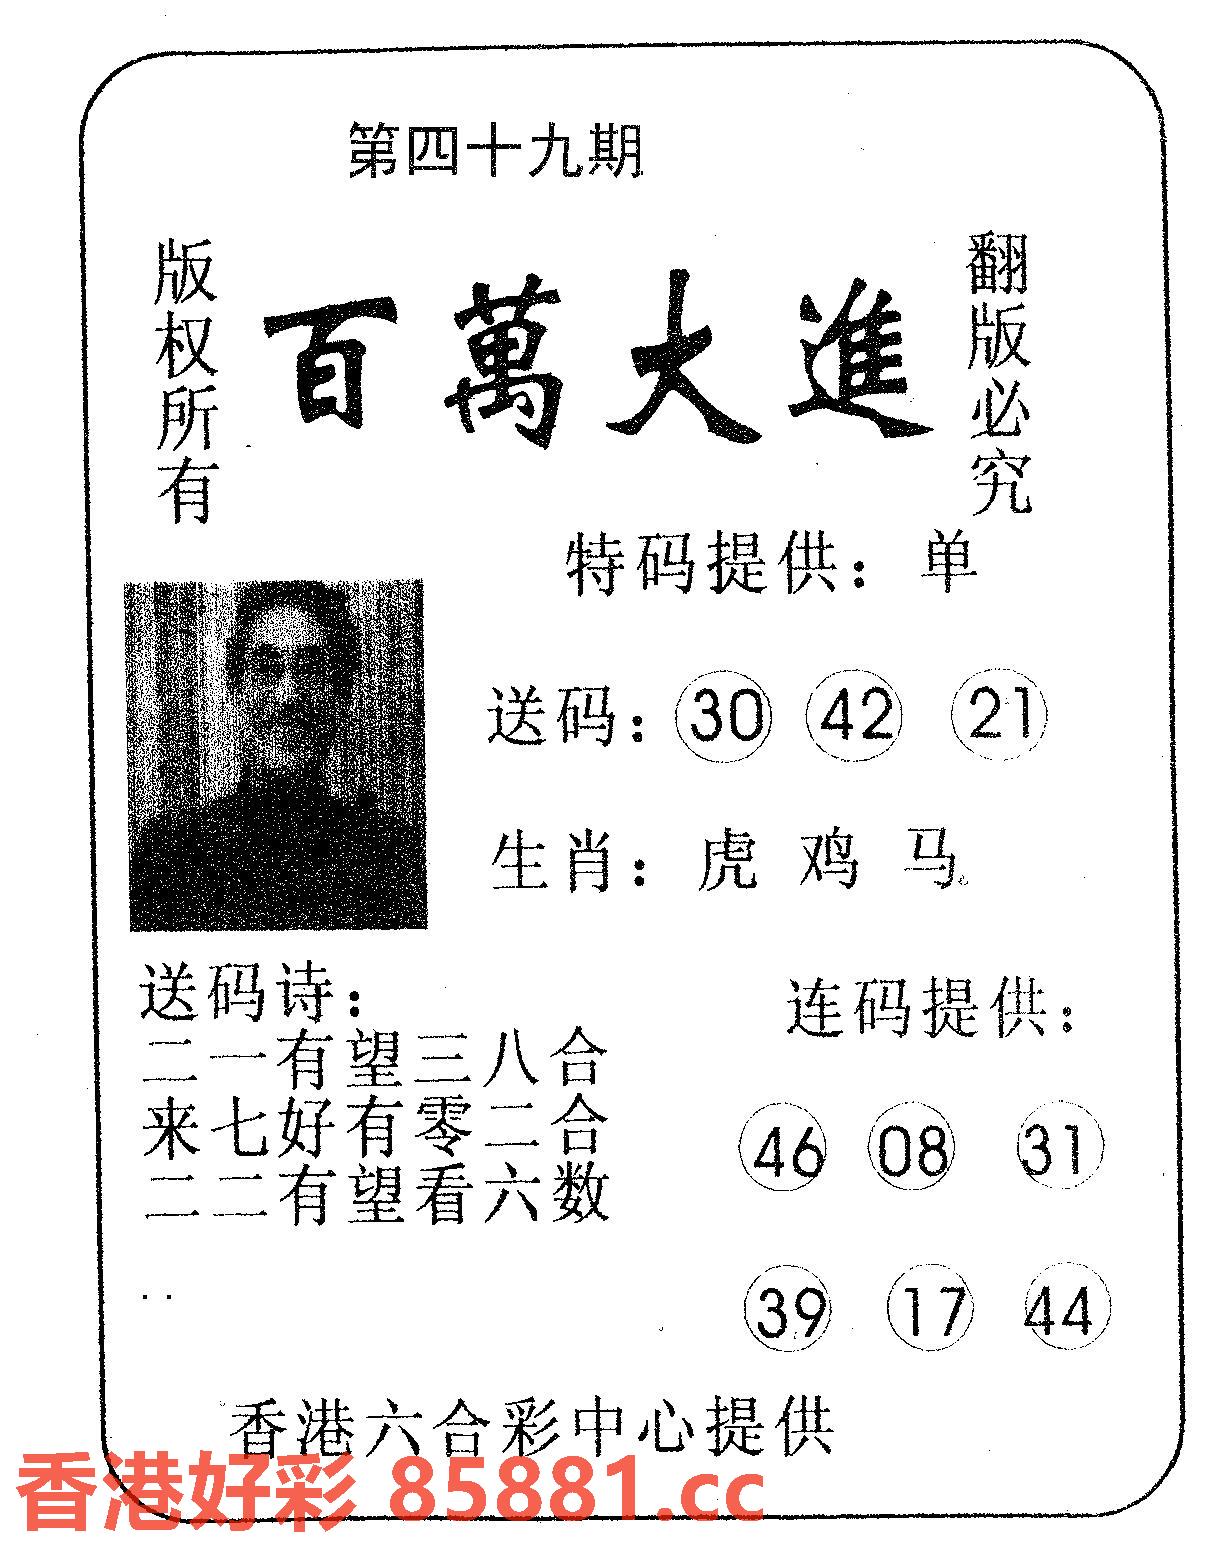 第四十九期
版权所有
百萬大進
翻版必究
特码提供：单
送码：30 42 21
生肖：虎 鸡 马
送码诗：
二一有望三八合
来七好有零二合
二二有望看六数
连码提供：
46 08 31
39 17 44
香港六合彩中心提供
香港好彩 85881.cc